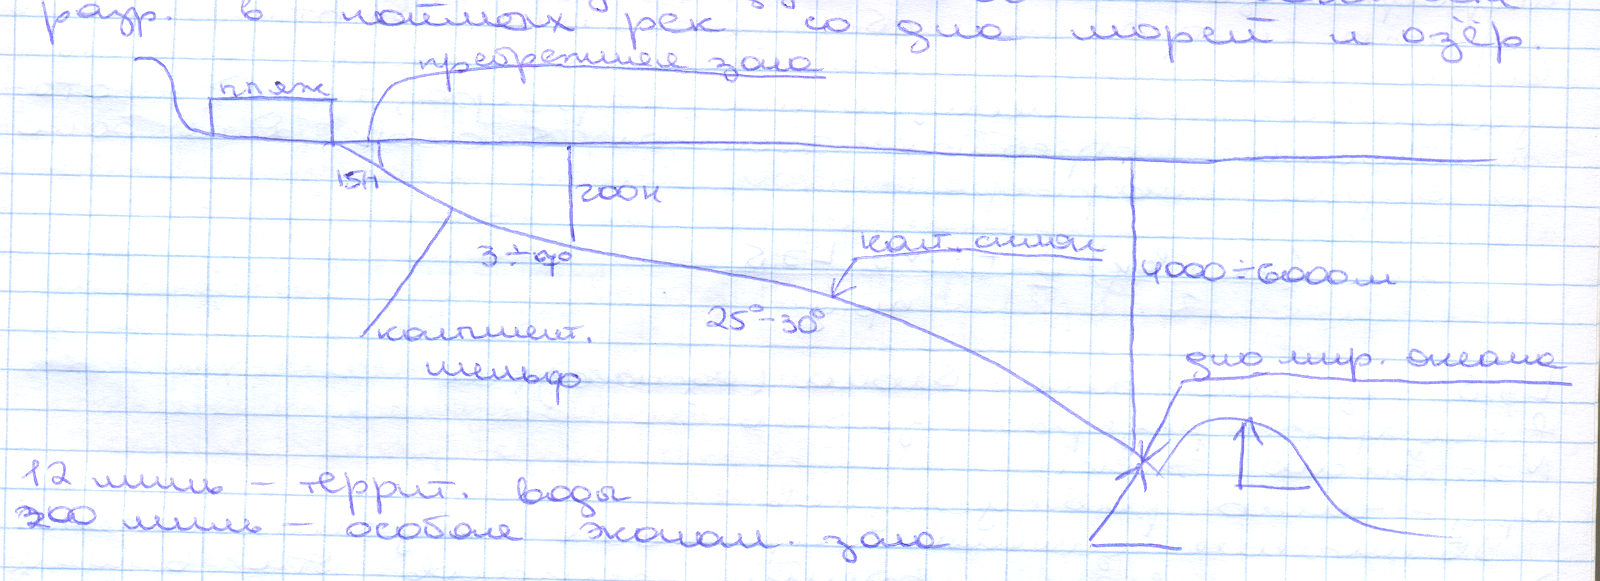 разр. в поймах рек со дна морей и озёр.
прибрежная зона
пляж
15м
200м
3÷4°
конт. склон
4000÷6000м
25°-30°
континент.
шельф
дно мир. океана
12 миль – террит. воды
200 миль – особая эконом. зона